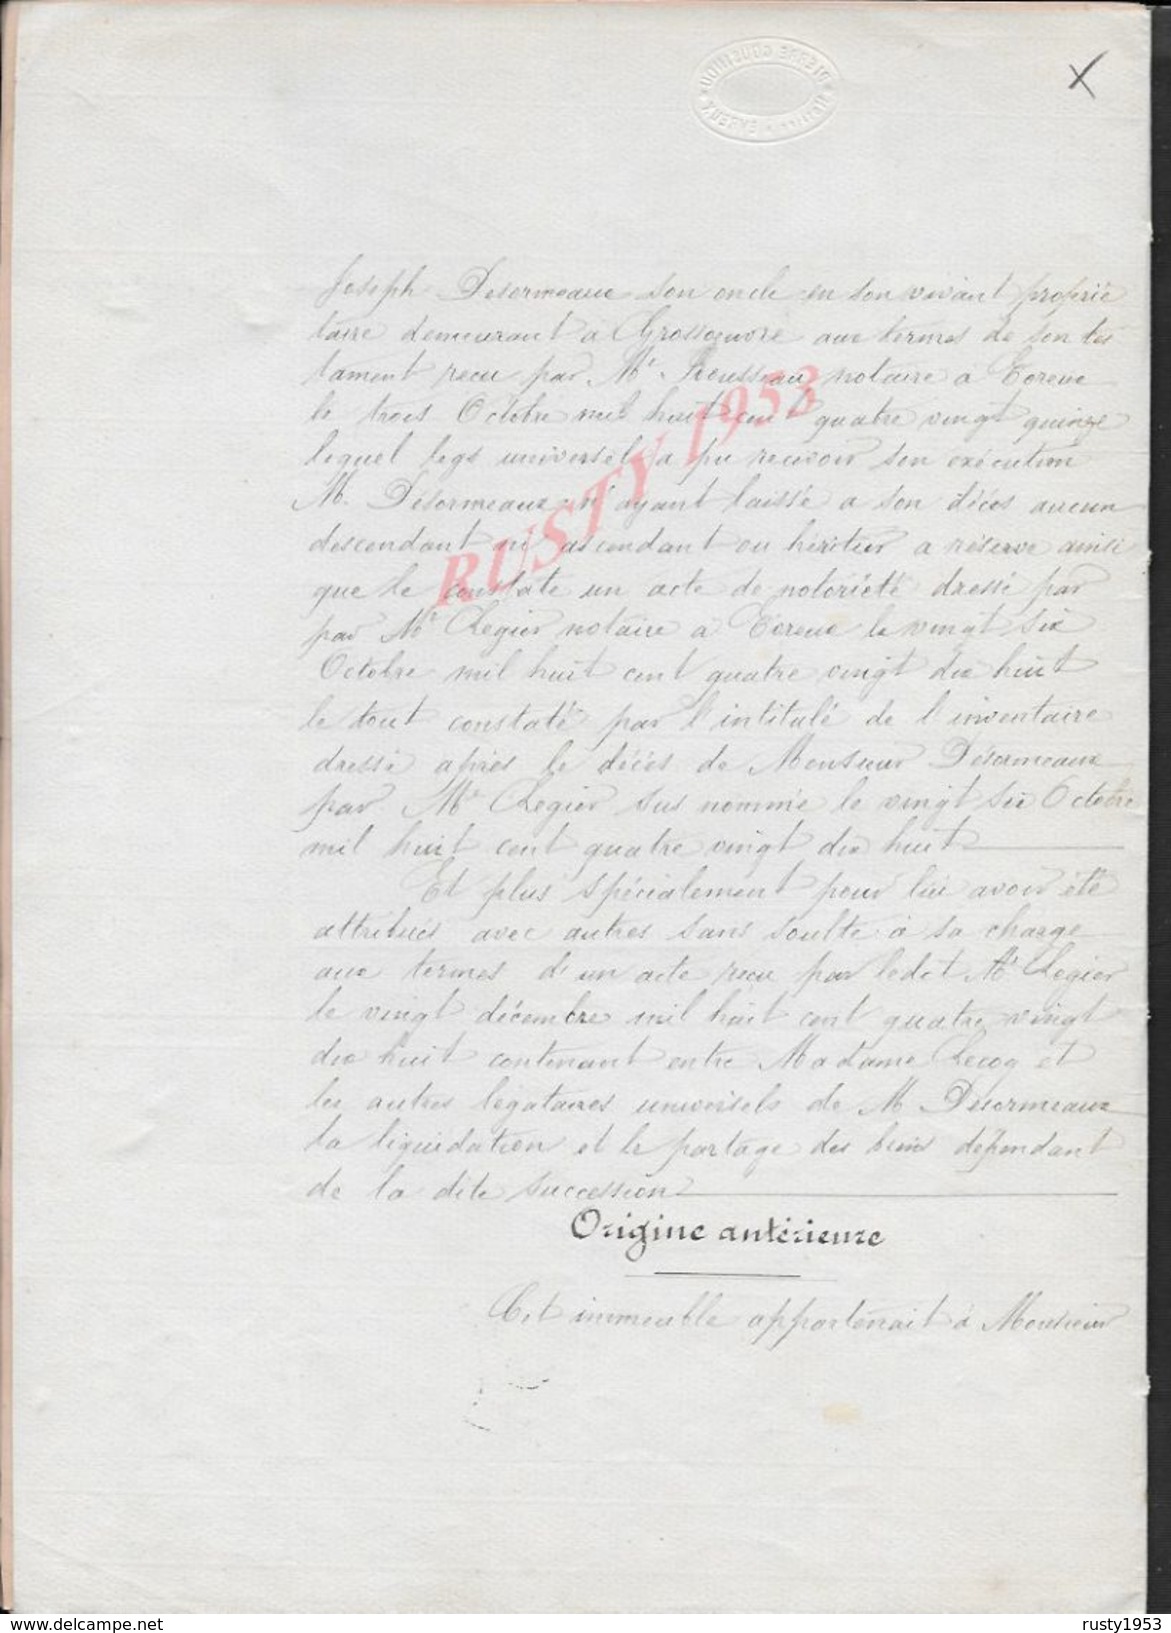 Joseph Desormeaux son oncle en son vivant proprié
taire demeurant à Grossœuvre aux termes de son tes
tament reçu par Me Rousseau notaire a Evreux
le trois Octobre mil huit cent quatre vingt quinze
lequel legs universel a pu recevoir son exécution
M. Désormeaux n'ayant laissé a son décès aucun
descendant ni ascendant ou héritier a réserve ainsi
que le constate un acte de notoriété dressé par
par Me Regier notaire a Evreux le vingt six
Octobre mil huit cent quatre vingt dix huit
le tout constaté par l'intitulé de l'inventaire
dressé après le décès de Monsieur Désormeaux
par Me Regier sus nommé le vingt six Octobre
mil huit cent quatre vingt dix huit
Et plus spécialement pour lui avoir été
attribués avec autres sans soulte à sa charge
aux termes d'un acte reçu par ledit Me Regier
le vingt décembre mil huit cent quatre vingt
dix huit contenant entre Madame Lecoq et
les autres légataires universels de M Desormeaux
la liquidation et le partage des biens dépendant
de la dite succession
Origine antérieure
Cet immeuble appartenait à Monsieur
RUSTY 1953
delcampe.net
rusty1953